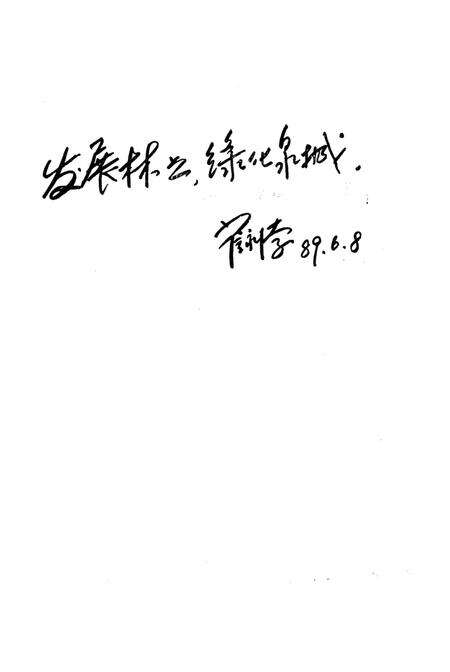 发展林业，绿化泉城。
翟永孛 89.6.8